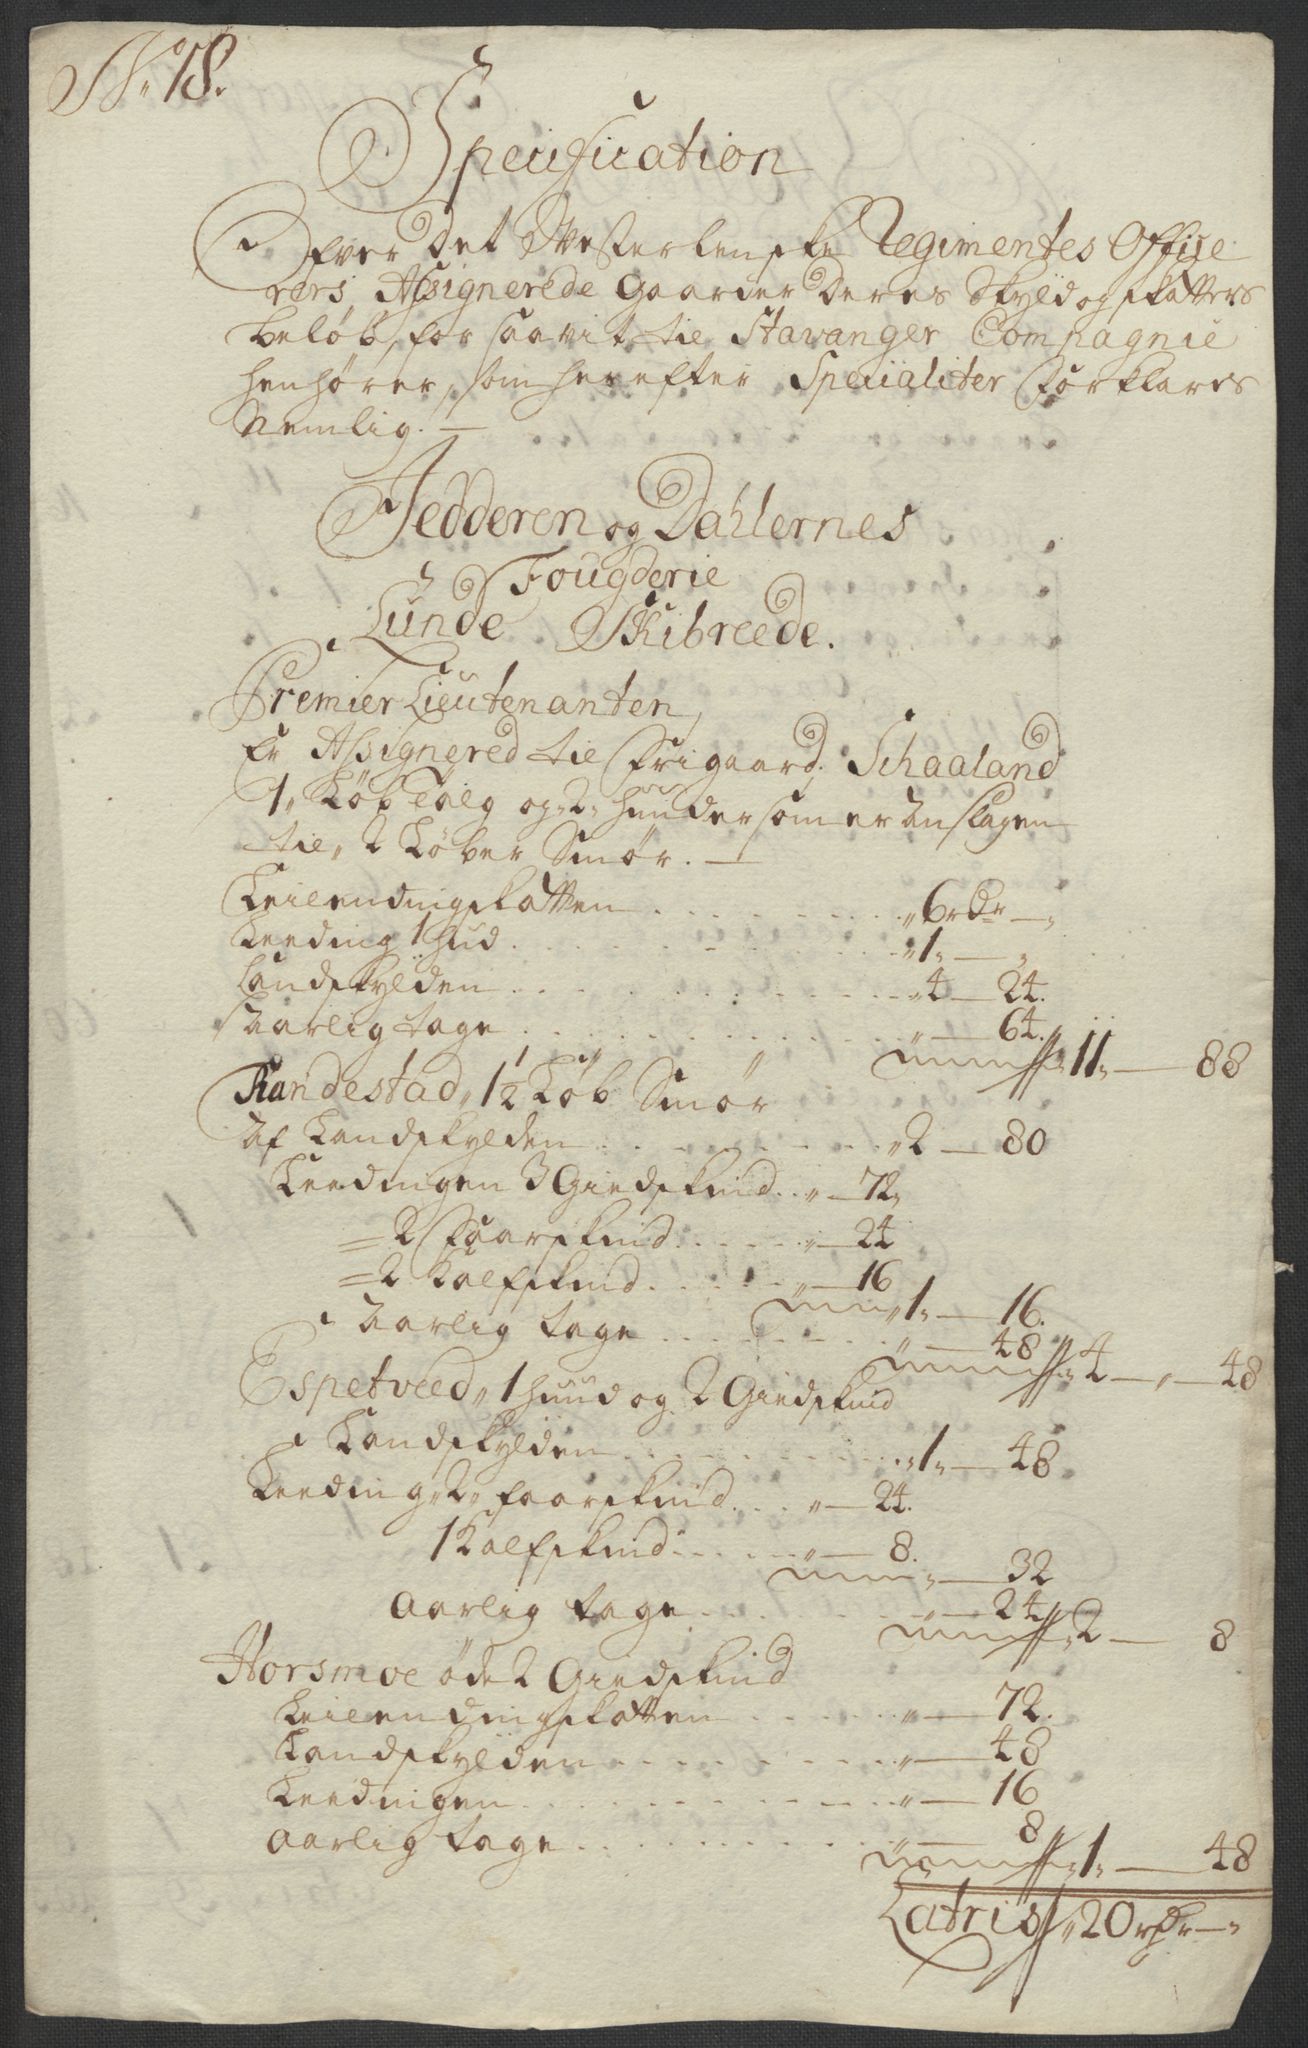 No 18.
Specification
Ofver Det Westerlenske Regimentes Office
rers Assignerede Gaarder Deres Skyld og skatters
beløb, for saavit til Stavanger Compagnie
henhører, som herefter Specialiter forklares
Nemlig. —
Jedderen og Dahlernes
Fougderie
Lunde Skibreede.
Premier Lieutenanten,
Er Assignered til Frigaard Schaaland
1 Løb Talg og 2 huuder som er anslagen
til 2 Løber Smør. —
Leilendingskatten . . . 6 rdr —
Leeding 1 hud . . . 1 —
Landskylden . . . 4 — 24.
Aarlig tage . . . — 64.
11 — 88
Randestad, 1 1/2 Løb Smør
Af Landskylden . . . 2 — 80
Leedingen 3 Giedskind . . — 72
= 2 Faarskind . . . — 24
= 2 Kalfskind . . . — 16
1 — 16.
Aarlig tage . . . — 48
4 — 48
Espetveed, 1 huud og 2 Giedskind
Landskylden . . . 1 — 48
Leeding 2 faarskind . . . — 24.
1 Kalfskind . . . — 8.
— 32
Aarlig tage . . . — 24
2 — 8
Horsmoe øde 2 Giedskind
Leilendingskatten . . . — 72.
Landskylden . . . — 48
Leedingen . . . — 16
Aarlig tage . . . — 8
1 — 48
Latris 20 rdr —